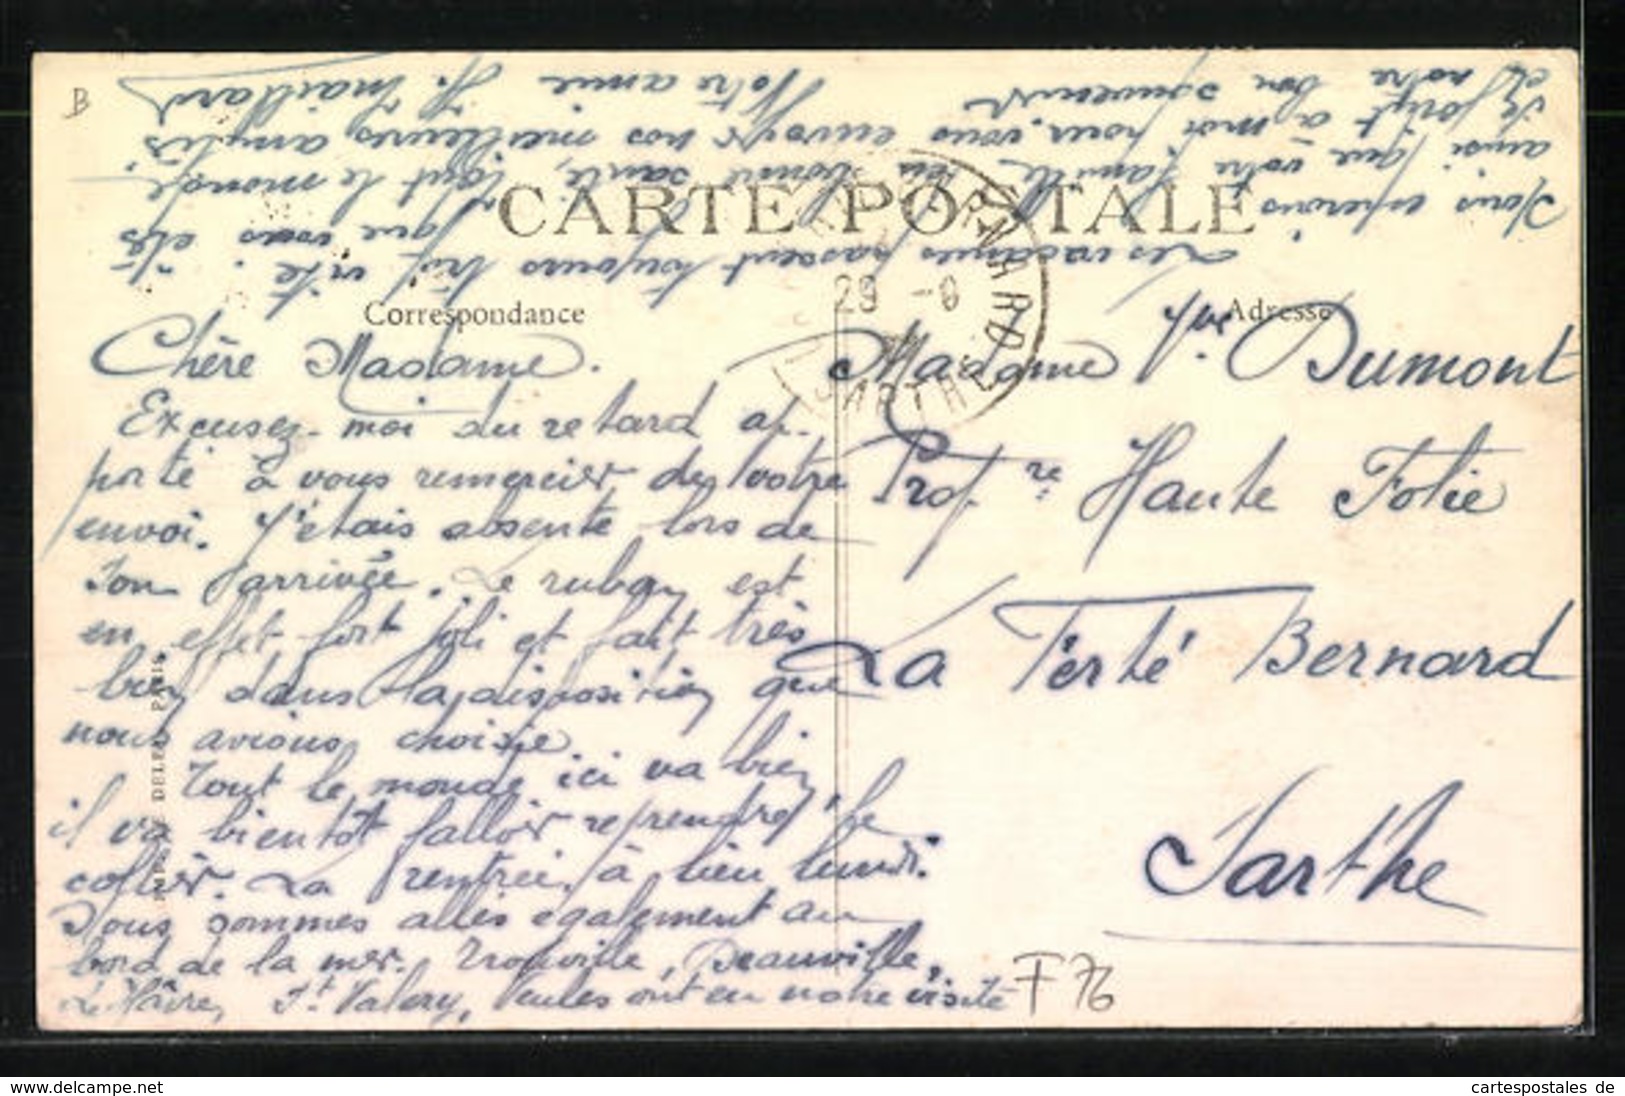 B
CARTE POSTALE
Correspondance
Adresse
Chère Madame.
Excusez-moi du retard ap-
porté à vous remercier de votre
envoi. J'étais absente lors de
son arrivée. Le ruban est
en effet fort joli et fait très
bien dans la disposition que
nous avions choisie
Tout le monde ici va bien
il va bientôt falloir reprendre le
collier. La rentrée à lieu lundi.
Nous sommes allés également au
bord de la mer. Trouville, Deauville,
Le Hâvre, St Valery, Veules ont eu notre visite
Les vacances passent toujours trop vite.
Nous espérons que vous êtes
ainsi que votre famille en bonne santé, tout le monde
se joint à moi pour vous envoyer nos meilleurs amitiés
et notre bon souvenir
Votre amie Y. Maillard
Madame Vve Dumont
Prof. re Haute Folie
La Ferté Bernard
Sarthe
29 -9
BERNARD
SARTHE
DELEY PARIS
F 76
www.delcampe.net
cartespostales de